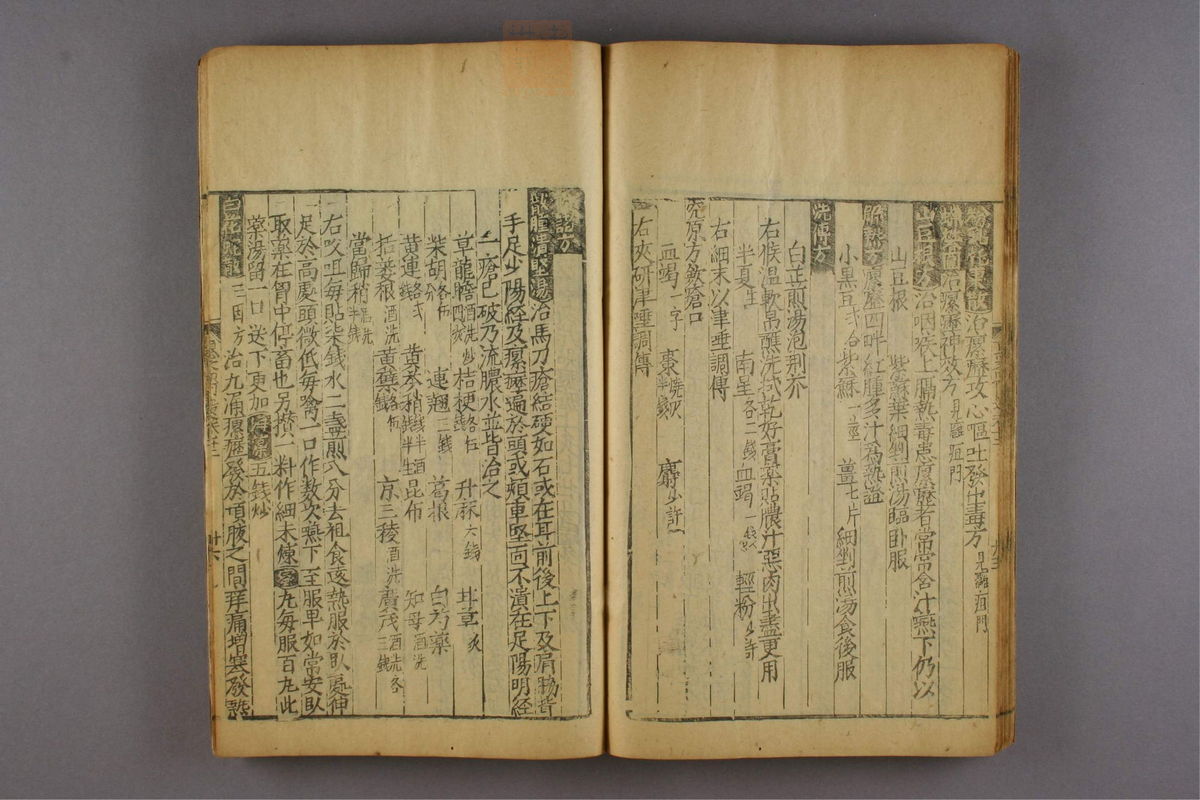 治瘰癧攻心嘔吐發出毒方 見雜疽門
治瘰癧神效方 見雜疽門
山豆根方 治咽喉上膈熱毒患瘰癧者常含汁嚥下仍以
山豆根 紫蘇葉細剉煎湯臨臥服
解毒方 瘰癧四畔紅腫多汁爲熱證
小黑豆 紫蘇一莖 薑七片 細剉煎湯食後服
洗傅方
白芷煎湯泡荆芥
右候温軟帛醮洗拭乾好膏藥貼膿汁惡肉出盡更用
半夏生 南星各二錢 血竭一 輕粉少許
右細末以津唾調傅
原方斂瘡口
血竭一字 棗燒灰 麝少許
右夾研津唾調傅
方
龍膽湯 治馬刀瘡結硬如石或在耳前後上下及肩
手足少陽經及瘰癧遍於頭或頰車堅而不潰在足陽明經
二瘡已破乃流膿水並皆治之
草龍膽酒洗炒四 桔梗各五錢 升麻六錢 甘草炙
柴胡各五分 連翹三錢 葛根 白芍藥
黄連 黄芩稍 昆布 知母酒洗
栝蔞根酒洗 黄蘗 京三稜酒洗 廣茂酒洗各三錢
當歸稍酒洗半錢
右㕮咀每貼柒錢水二盞煎八分去柤食後熱服於臥處伸
足於高處頭微低每噙一口作數次嚥下至服畢如常安臥
取藥在胃中停畜也另攢一料作細末煉蜜丸每服百丸此
藥湯留一口送下更加海藻五錢炒
三因方 治九漏瘰癧發於項腋之間痒痛增寒發熱